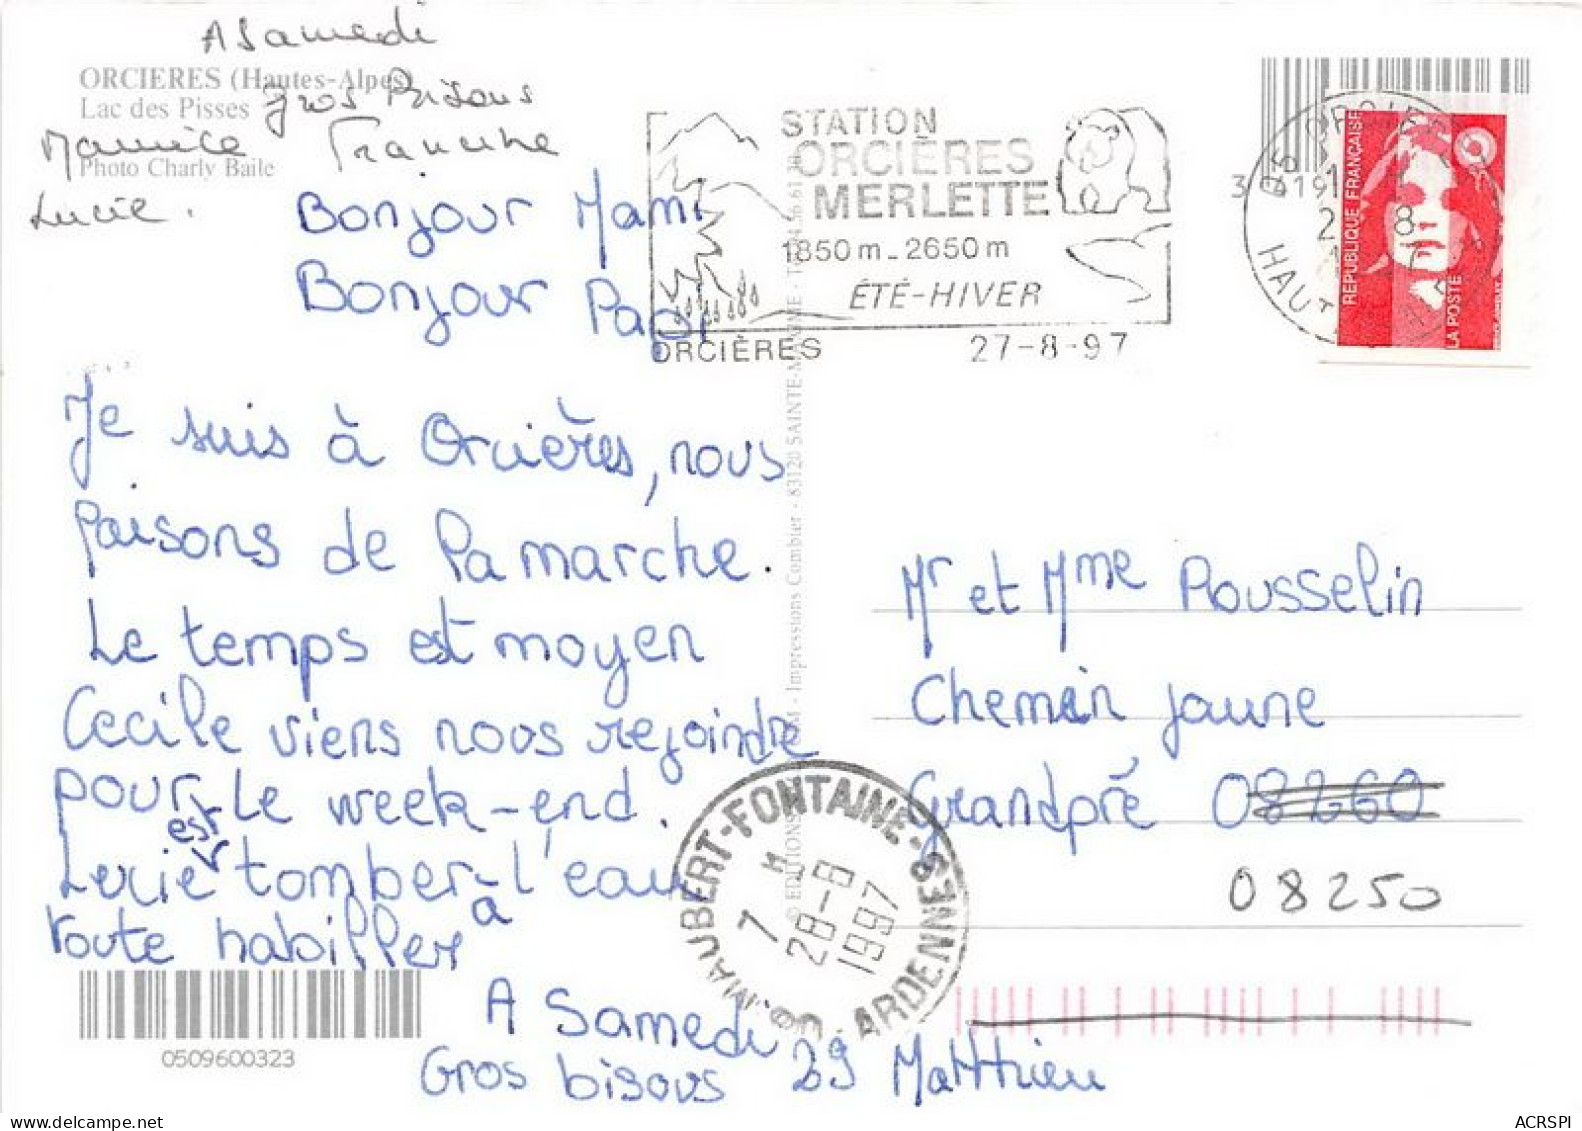 A Samedi
ORCIERES (Hautes-Alpes)
Lac des Pisses
gros Bisous
Maurice Francine
Photo Charly Baile
Lucie.
Bonjour Mami
Bonjour Papi
Je suis à Orcières, nous
faisons de la marche.
Le temps est moyen
Cecile viens nous rejoindre
pour le week-end.
est
Lucie tomber à l'eau
toute habiller
A Samedi
Gros bisous 29 Matthieu
0509600323
STATION
ORCIÈRES
MERLETTE
1850 m - 2650 m
ÉTÉ-HIVER
ORCIÈRES 27-8-97
RÉPUBLIQUE FRANÇAISE
LA POSTE
Mr et Mme Rousselin
Chemin jaune
Grandpré 08260
08250
MAUBERT-FONTAINE
ARDENNES
7 H
28-8
1997
- Impressions Combier - 83120 SAINTE-MAXIME -
© EDITIONS
ACRSPI